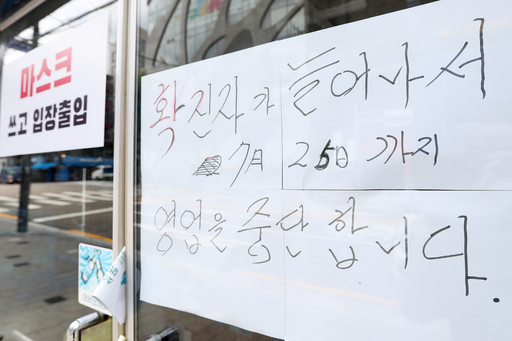 마스크
쓰고 입장출입
확진자가 늘어나서
7月 25日 까지
영업을 중단 합니다.